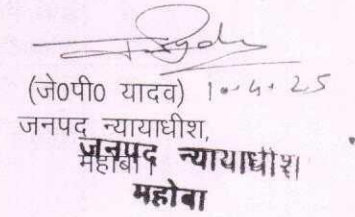 (जे0पी0 यादव) 10.4.25
जनपद न्यायाधीश,
महोबा।
जनपद न्यायाधीश
महोबा